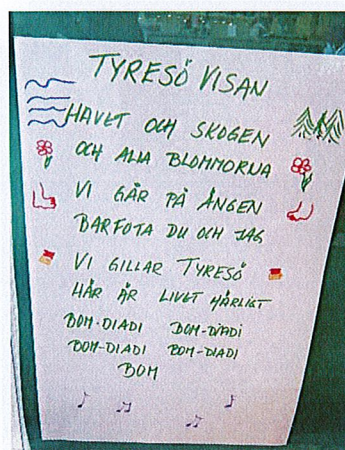 TYRESÖ VISAN
HAVET OCH SKOGEN
OCH ALLA BLOMMORNA
VI GÅR PÅ ÄNGEN
BARFOTA DU OCH JAG
VI GILLAR TYRESÖ
HÄR ÄR LIVET HÄRLIGT
BOM-DIADI BOM-DIADI
BOM-DIADI BOM-DIADI
BOM